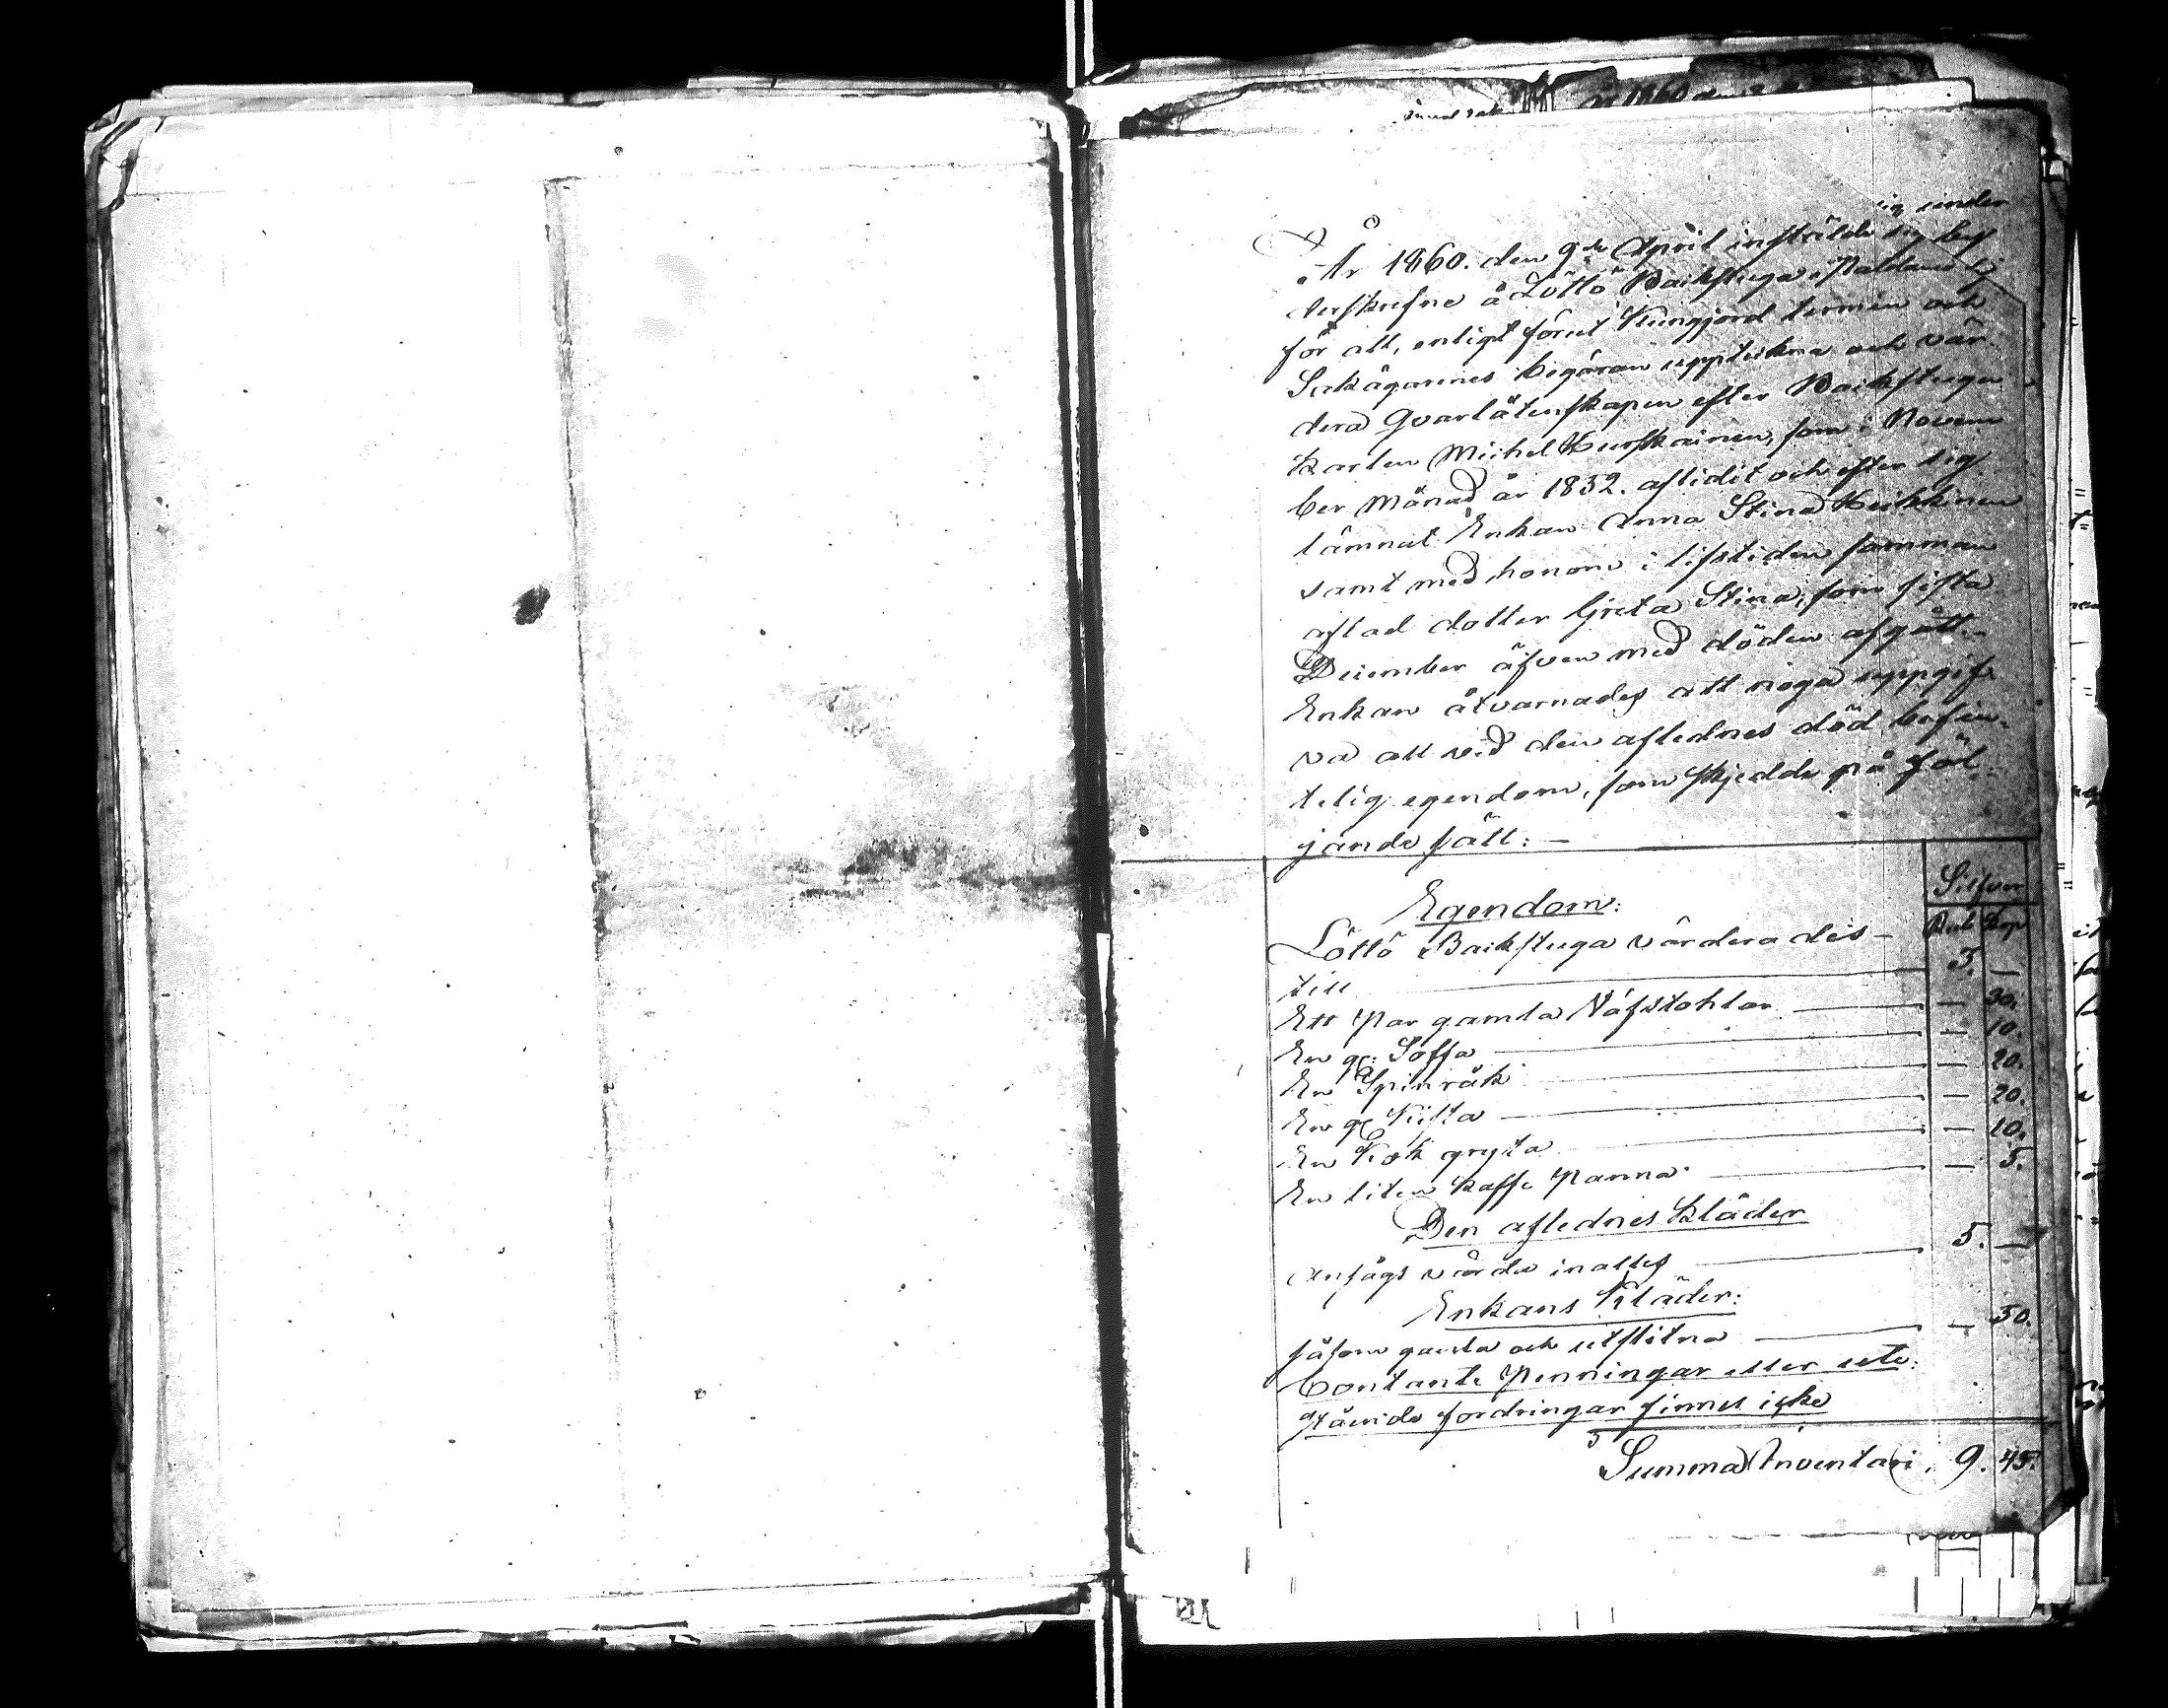 År 1860. den 9de April instälde sig under
derskrefne å Löttö Backstuga i Paldanis by
för att, enligt förut kungjord termin och
Sakägarenes begäran uppteckna och vär
dera Qvarlåtenskapen efter Backstugu
karlen Michel Kurskainen, som i Novem
ber Månad år 1832. aflidit och efter sig
lämnat Enkan Anna Stina Heikkinen
samt med honom i lifstiden samman
aflad dotter Greta Stina, som sista
December äfven med döden afgått.-
Enkan åtvarnades att noga uppgif-
va all vid den aflednes död befin-
telig egendom, som skjedde på föl-
jande sätt: —
Silfver
Rub Kop
Egendom:
Löttö Backstuga värderades
till 3. —
Ett par gamla Väfstohlar — 30.
En gl: Soffa — 10.
En Spinråk — 20.
En gl Kista — 20.
En Kok gryta — 10.
En liten kaffe panna — 5.
Den aflednes kläder
ansågs värde inalles 5. —
Enkans Kläder:
såsom gamla och utslitna — 50.
Contante Penningar eller ute:
stående fordringar finnes icke
Summa Inventari. 9. 45.